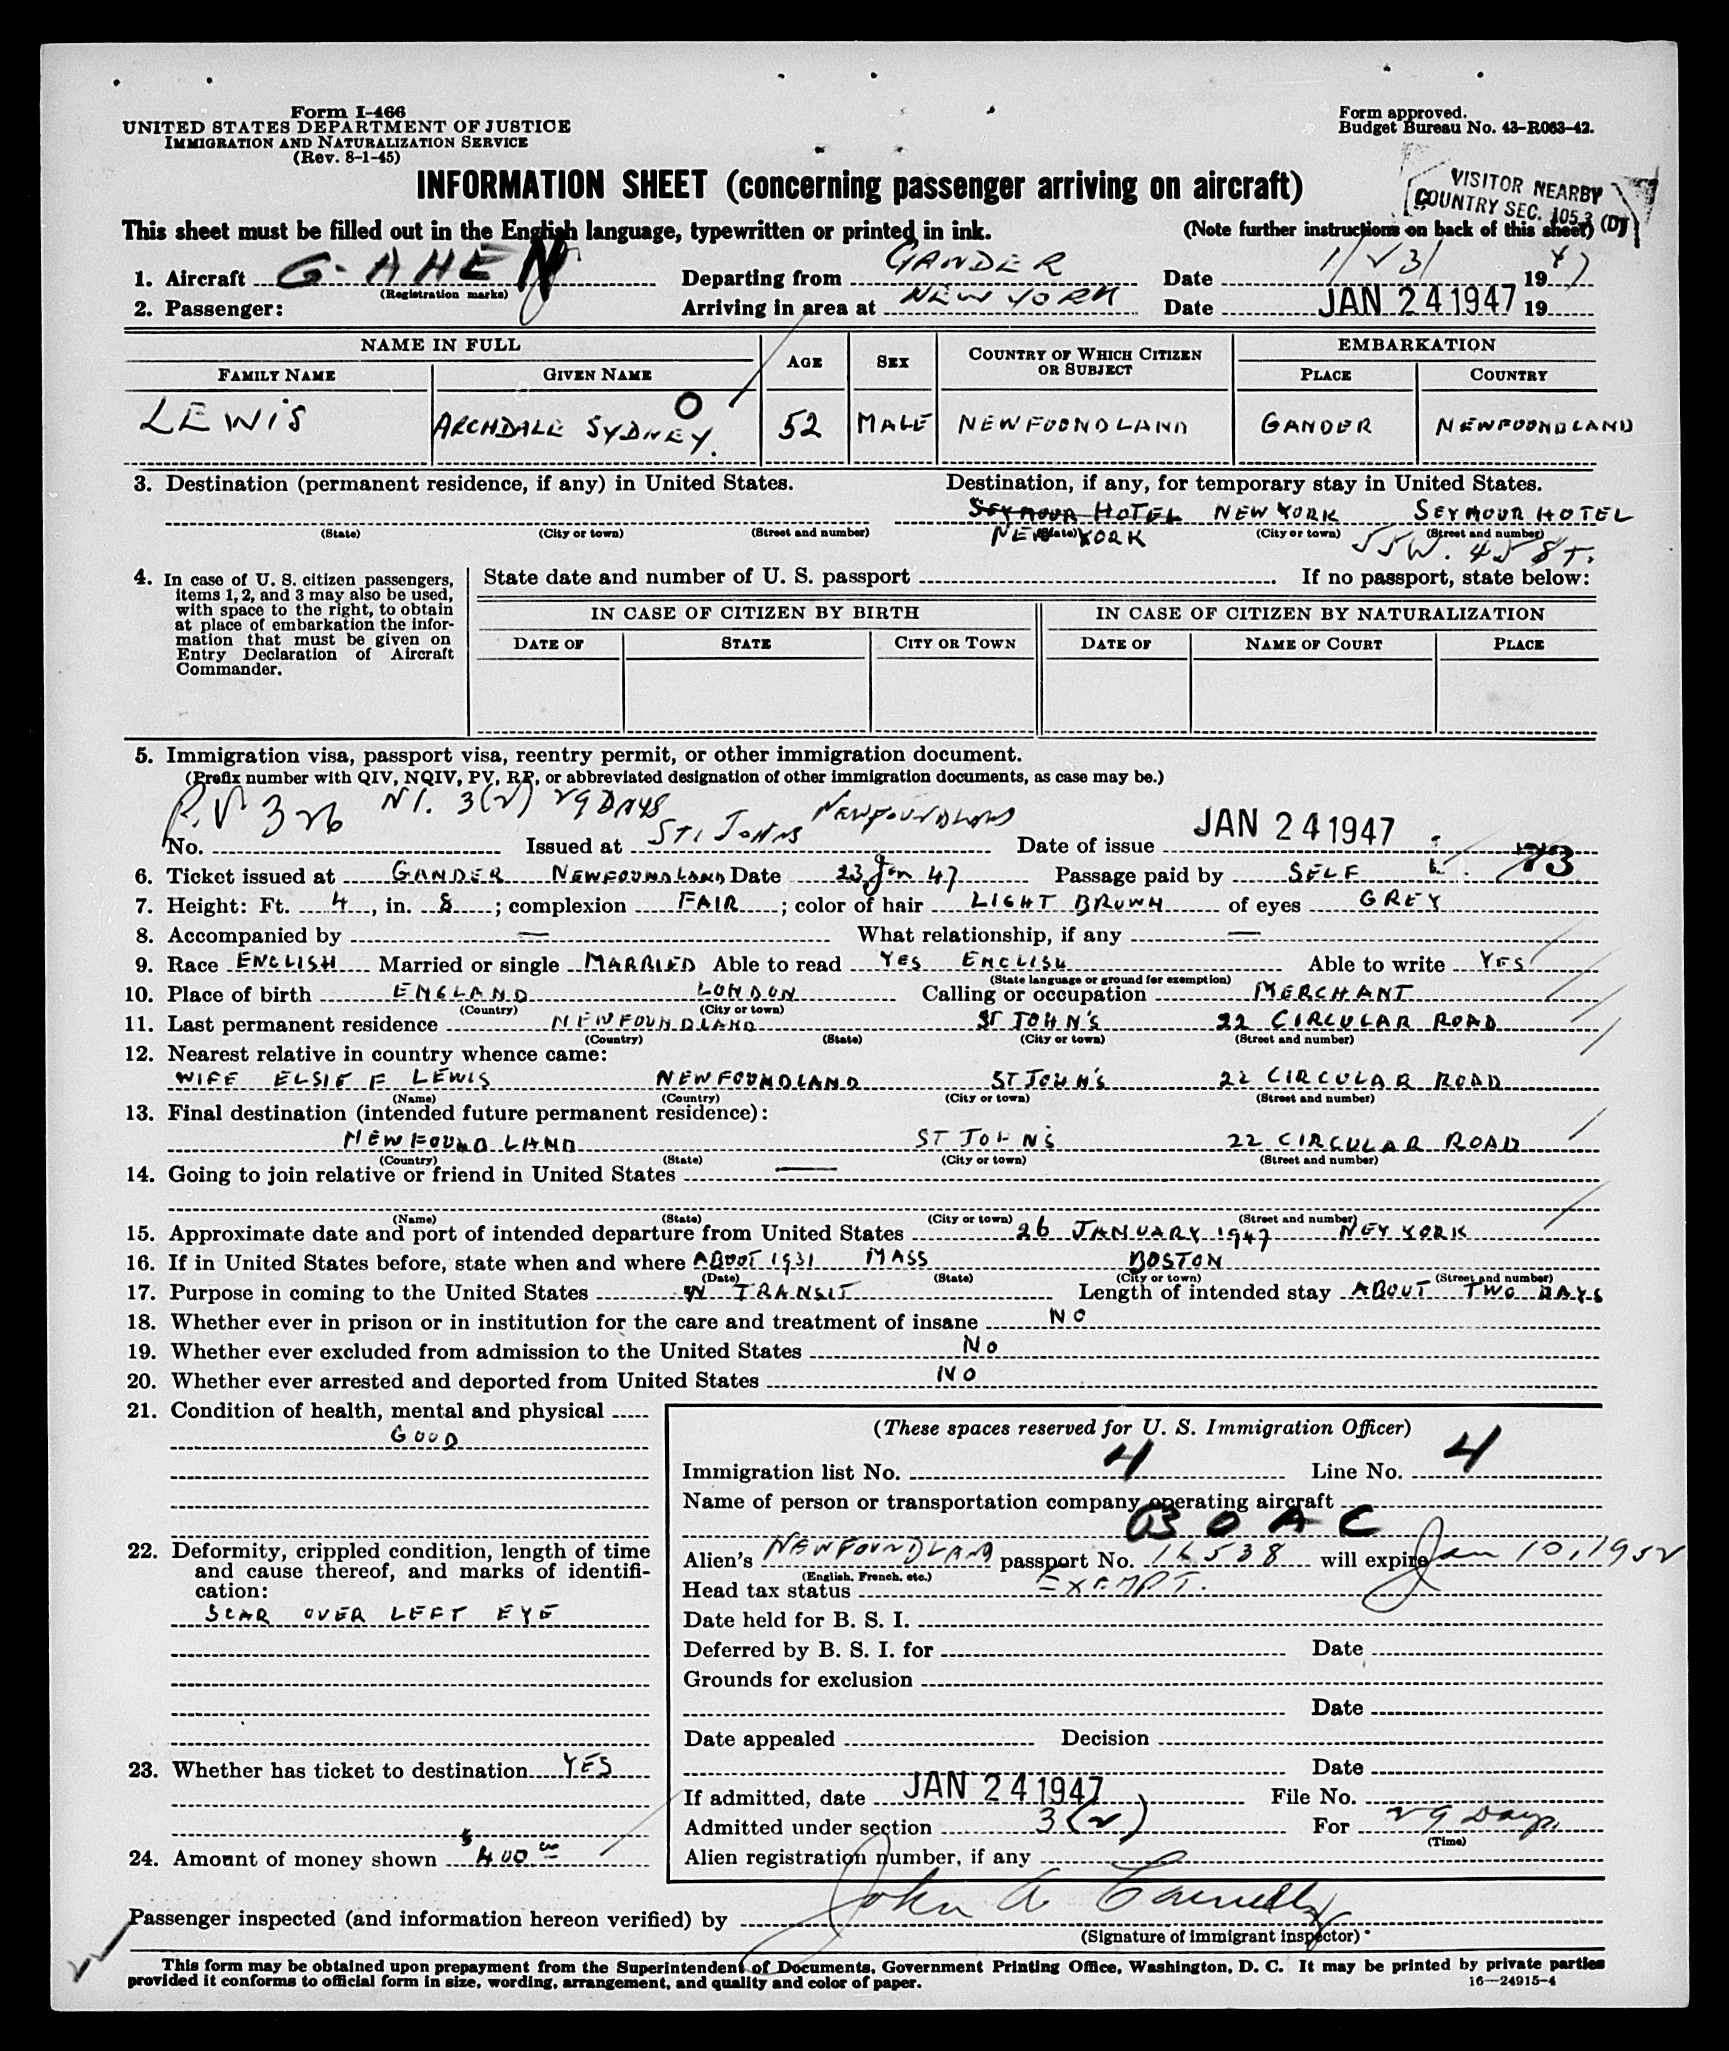 Form I-466
UNITED STATES DEPARTMENT OF JUSTICE
IMMIGRATION AND NATURALIZATION SERVICE
(Rev. 8-1-45)
Form approved.
Budget Bureau No. 43-R063-42.
INFORMATION SHEET (concerning passenger arriving on aircraft)
VISITOR NEARBY
COUNTRY SEC. 105.3 (D)
This sheet must be filled out in the English language, typewritten or printed in ink. (Note further instructions on back of this sheet)
1. Aircraft G-AHEN Departing from GANDER Date 1/23/ 1947
(Registration marks)
2. Passenger: Arriving in area at NEW YORK Date JAN 24 1947 19
NAME IN FULL AGE SEX COUNTRY OF WHICH CITIZEN OR SUBJECT EMBARKATION
FAMILY NAME GIVEN NAME PLACE COUNTRY
LEWIS ARCHDALE SYDNEY. O 52 MALE NEWFOUNDLAND GANDER NEWFOUNDLAND
3. Destination (permanent residence, if any) in United States. Destination, if any, for temporary stay in United States.
SEYMOUR HOTEL NEW YORK SEYMOUR HOTEL
(State) (City or town) (Street and number) (State) (City or town) (Street and number)
NEW YORK 55 W. 45 ST.
4. In case of U. S. citizen passengers, items 1, 2, and 3 may also be used, with space to the right, to obtain at place of embarkation the information that must be given on Entry Declaration of Aircraft Commander.
State date and number of U. S. passport If no passport, state below:
IN CASE OF CITIZEN BY BIRTH IN CASE OF CITIZEN BY NATURALIZATION
DATE OF STATE CITY OR TOWN DATE OF NAME OF COURT PLACE
5. Immigration visa, passport visa, reentry permit, or other immigration document.
(Prefix number with QIV, NQIV, PV, RP, or abbreviated designation of other immigration documents, as case may be.)
P.V 326 NI. 3(2) 29 DAYS
No. Issued at ST. JOHNS NEWFOUNDLAND Date of issue JAN 24 1947 73
6. Ticket issued at GANDER NEWFOUNDLAND Date 23 Jan 47 Passage paid by SELF
7. Height: Ft. 4, in. 8; complexion FAIR; color of hair LIGHT BROWN of eyes GREY
8. Accompanied by — What relationship, if any —
9. Race ENGLISH Married or single MARRIED Able to read YES ENGLISH Able to write YES
(State language or ground for exemption)
10. Place of birth ENGLAND LONDON Calling or occupation MERCHANT
(Country) (City or town)
11. Last permanent residence NEWFOUNDLAND ST JOHN'S 22 CIRCULAR ROAD
(Country) (State) (City or town) (Street and number)
12. Nearest relative in country whence came:
WIFE ELSIE F LEWIS NEWFOUNDLAND ST JOHN'S 22 CIRCULAR ROAD
(Name) (Country) (City or town) (Street and number)
13. Final destination (intended future permanent residence):
NEWFOUNDLAND ST JOHN'S 22 CIRCULAR ROAD
(Country) (State) (City or town) (Street and number)
14. Going to join relative or friend in United States —
(Name) (State) (City or town) (Street and number)
15. Approximate date and port of intended departure from United States 26 JANUARY 1947 NEY YORK
16. If in United States before, state when and where ABOUT 1931 MASS BOSTON
(Date) (State) (City or town) (Street and number)
17. Purpose in coming to the United States IN TRANSIT Length of intended stay ABOUT TWO DAYS
18. Whether ever in prison or in institution for the care and treatment of insane NO
19. Whether ever excluded from admission to the United States NO
20. Whether ever arrested and deported from United States NO
21. Condition of health, mental and physical
GOOD
22. Deformity, crippled condition, length of time and cause thereof, and marks of identification:
SCAR OVER LEFT EYE
23. Whether has ticket to destination YES
24. Amount of money shown $400 00
(These spaces reserved for U. S. Immigration Officer)
Immigration list No. 4 Line No. 4
Name of person or transportation company operating aircraft
BOAC
Alien's NEWFOUNDLAND passport No. 16538 will expire Jan 10, 1952
(English, French, etc.)
Head tax status EXEMPT.
Date held for B. S. I.
Deferred by B. S. I. for Date
Grounds for exclusion
Date
Date appealed Decision
Date
If admitted, date JAN 24 1947 File No.
Admitted under section 3(2) For 29 Days
(Time)
Alien registration number, if any
Passenger inspected (and information hereon verified) by John A
(Signature of immigrant inspector)
This form may be obtained upon prepayment from the Superintendent of Documents, Government Printing Office, Washington, D. C. It may be printed by private parties
provided it conforms to official form in size, wording, arrangement, and quality and color of paper.
16—24915-4